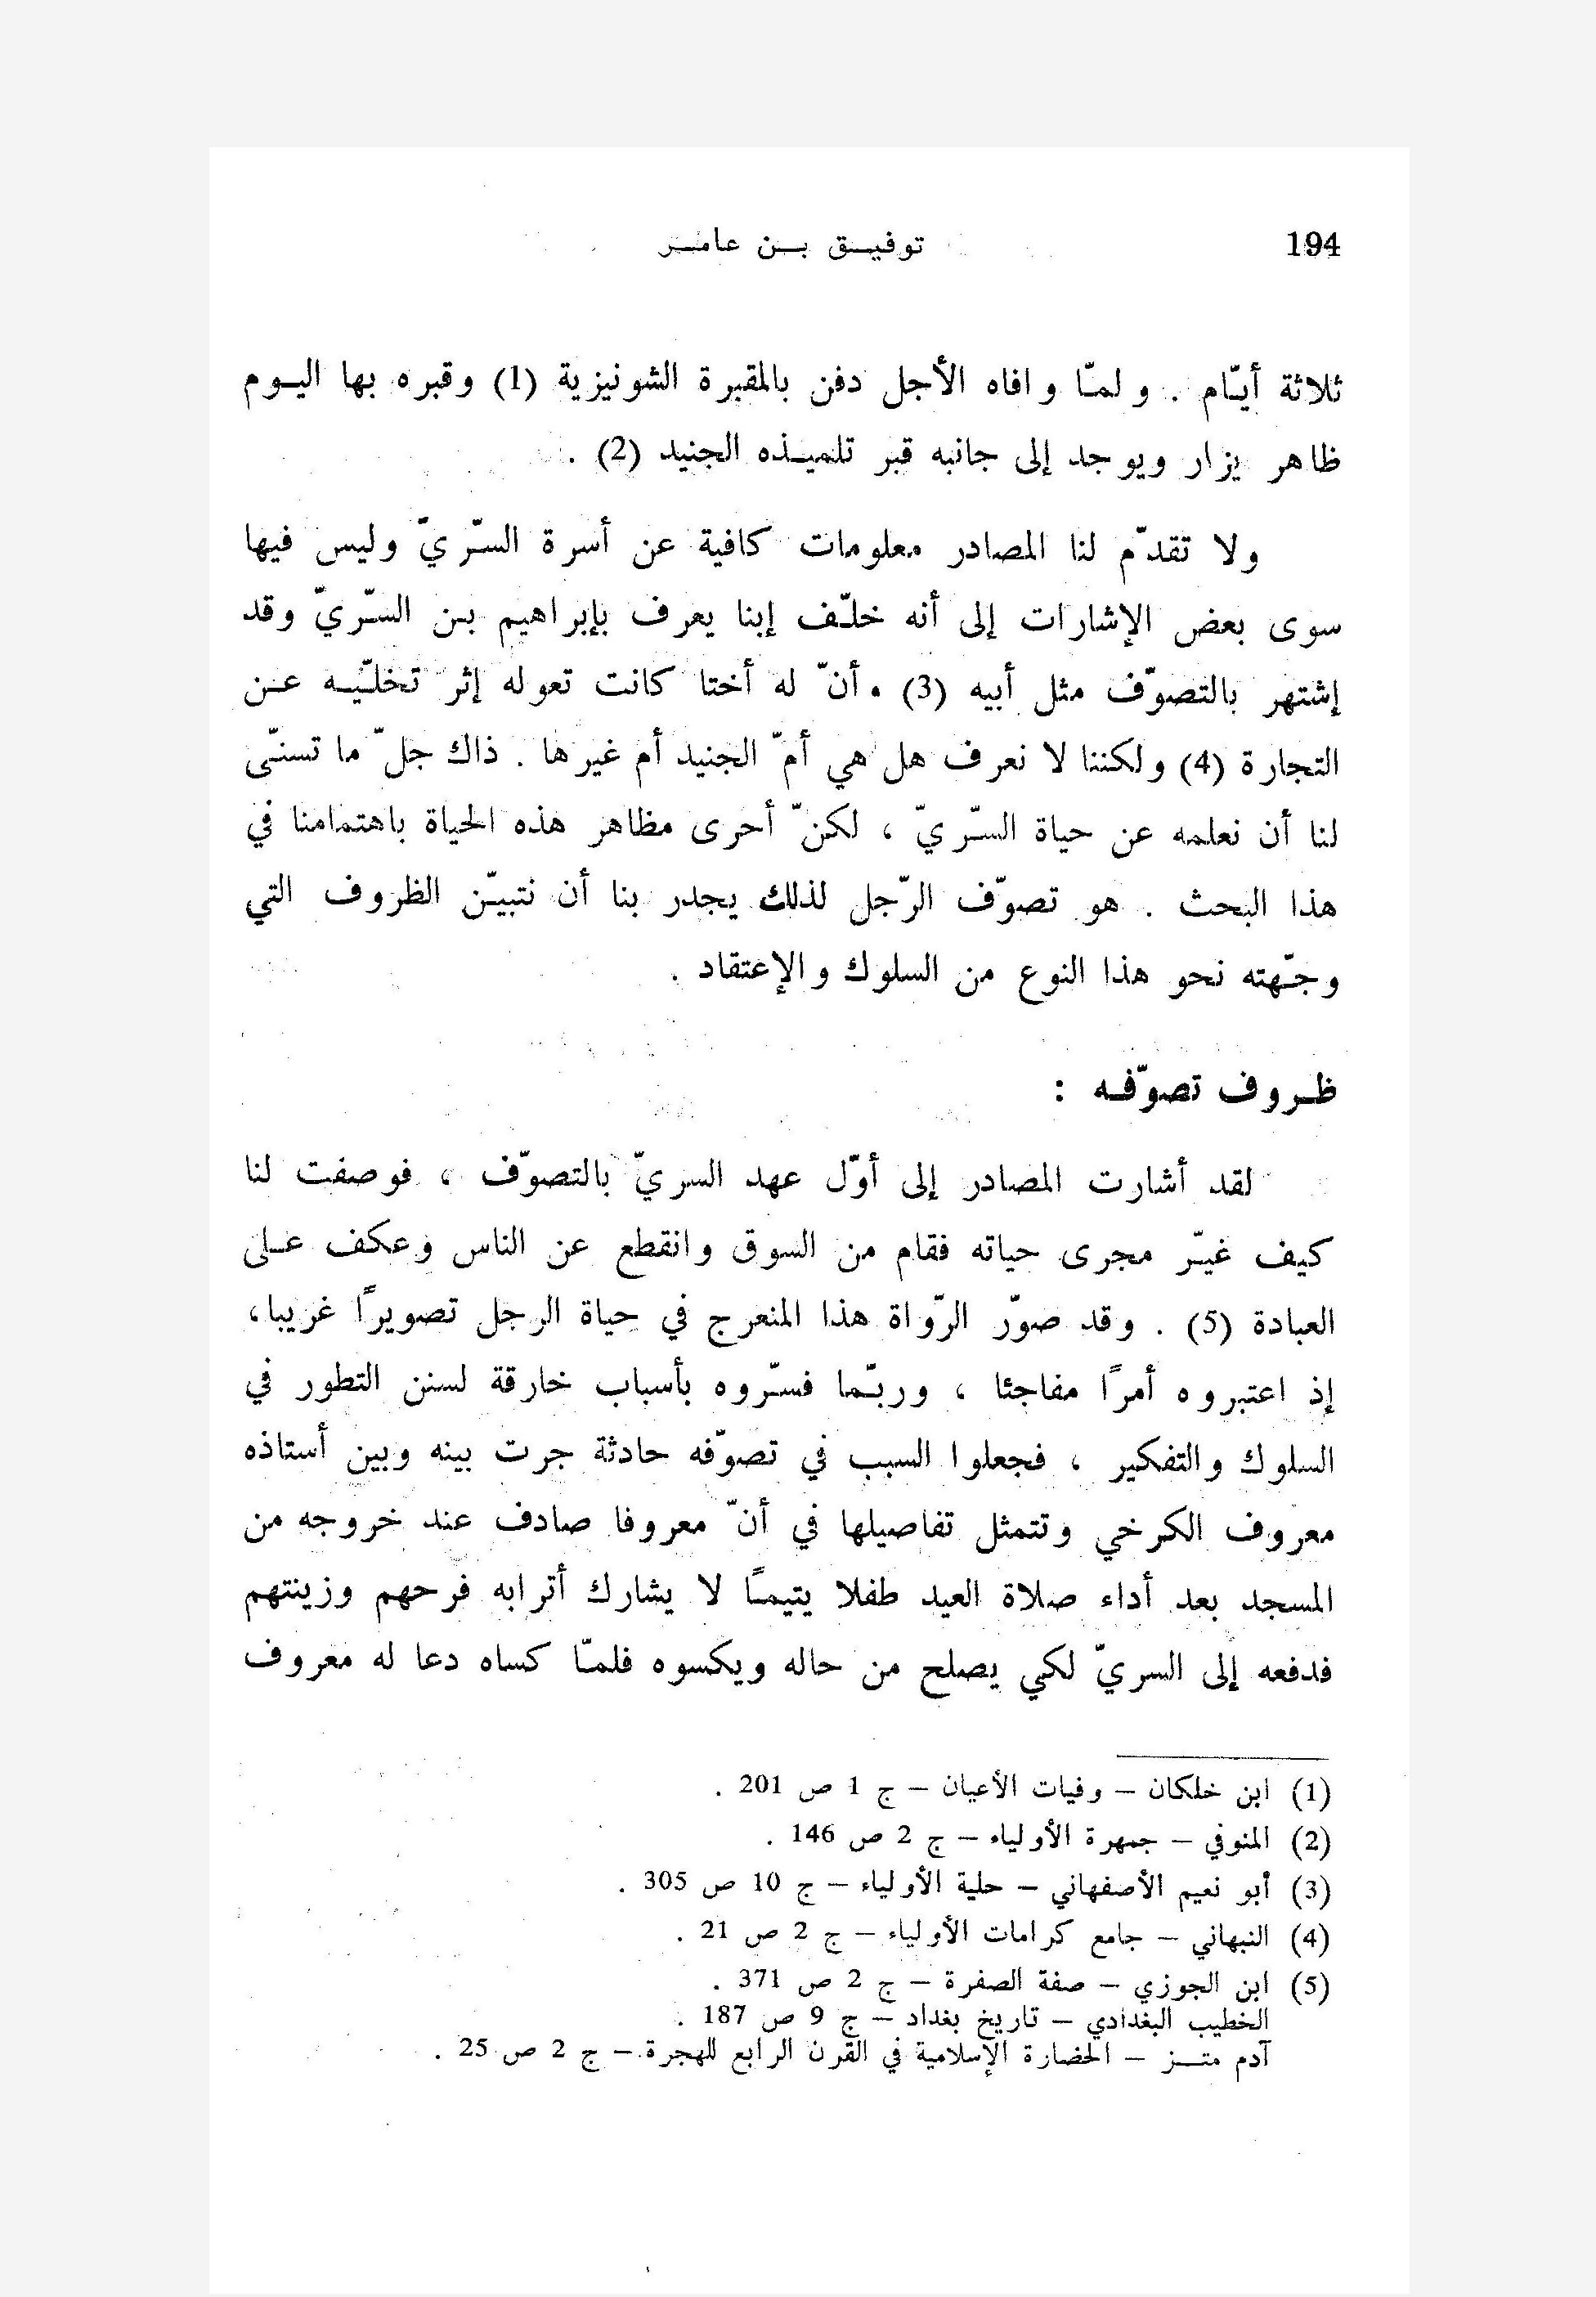 194
توفيق بن عامر
ثلاثة أيّام . ولمّا وافاه الأجل دفن بالمقبرة الشونيزية (1) وقبره بها اليوم
ظاهر يزار ويوجد إلى جانبه قبر تلميذه الجنيد (2) .
ولا تقدّم لنا المصادر معلومات كافية عن أسرة السّريّ وليس فيها
سوى بعض الإشارات إلى أنه خلّف إبنا يعرف بإبراهيم بن السّريّ وقد
إشتهر بالتصوّف مثل أبيه (3) . أنّ له أختا كانت تعوله إثر تخلّيه عن
التجارة (4) ولكننا لا نعرف هل هي أمّ الجنيد أم غيرها . ذاك جلّ ما تسنّى
لنا أن نعلمه عن حياة السّريّ ، لكنّ أحرى مظاهر هذه الحياة باهتمامنا في
هذا البحث . هو تصوّف الرّجل لذلك يجدر بنا أن نتبيّن الظروف التي
وجّهته نحو هذا النوع من السلوك والإعتقاد .
ظروف تصوّفه :
لقد أشارت المصادر إلى أوّل عهد السريّ بالتصوّف ، فوصفت لنا
كيف غيّر مجرى حياته فقام من السوق وانقطع عن الناس وعكف على
العبادة (5) . وقد صوّر الرّواة هذا المنعرج في حياة الرجل تصويرًا غريبا،
إذ اعتبروه أمرًا مفاجئا ، وربّما فسّروه بأسباب خارقة لسنن التطور في
السلوك والتفكير ، فجعلوا السبب في تصوّفه حادثة جرت بينه وبين أستاذه
معروف الكرخي وتتمثل تفاصيلها في أنّ معروفا صادف عند خروجه من
المسجد بعد أداء صلاة العيد طفلا يتيمًا لا يشارك أترابه فرحهم وزينتهم
فدفعه إلى السريّ لكي يصلح من حاله ويكسوه فلمّا كساه دعا له معروف
(1) ابن خلكان – وفيات الأعيان – ج 1 ص 201 .
(2) المنوفي – جمهرة الأولياء – ج 2 ص 146 .
(3) أبو نعيم الأصفهاني – حلية الأولياء – ج 10 ص 305 .
(4) النبهاني – جامع كرامات الأولياء – ج 2 ص 21 .
(5) ابن الجوزي – صفة الصفرة – ج 2 ص 371 .
الخطيب البغدادي – تاريخ بغداد – ج 9 ص 187 .
آدم متز – الحضارة الإسلامية في القرن الرابع للهجرة – ج 2 ص 25 .